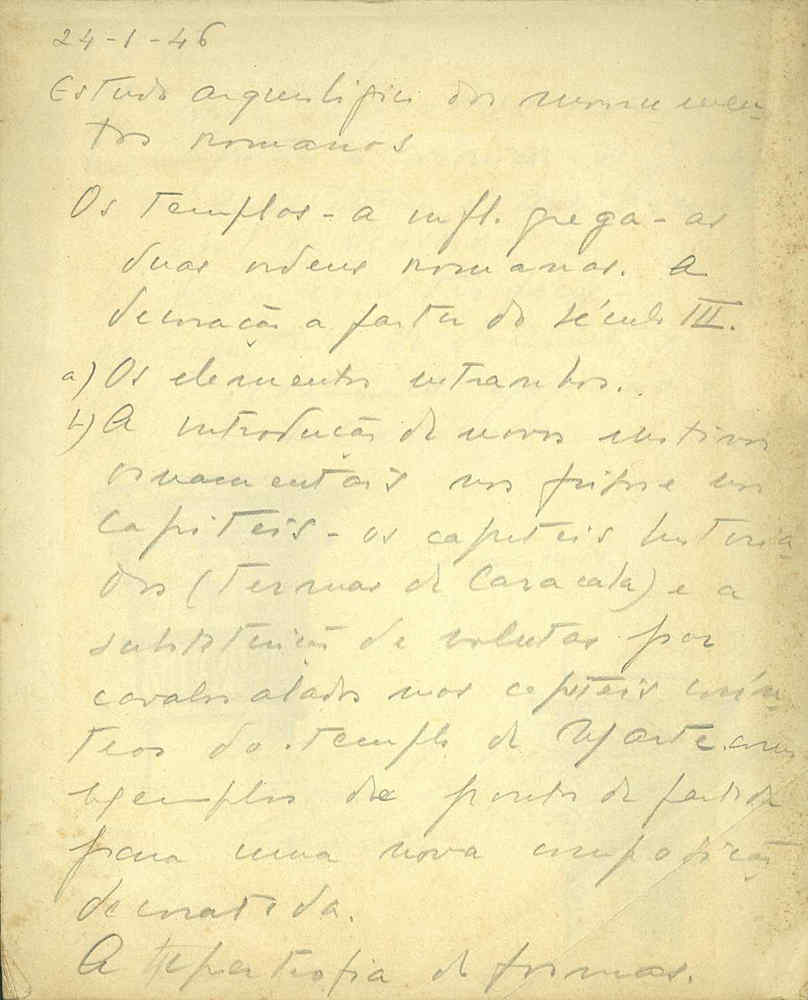 24-1-46
Estudo arqueológico dos monumen-
tos romanos
Os Templos - a infl. grega - as
duas ordens romanas. A
decoração a partir do século III.
a) Os elementos estranhos.
b) A introdução de novos motivos
ornamentais nos frisos e nos
capiteis - os capiteis historia-
dos (Termas de Caracala) e a
substituição de volutas por
cavalos alados nos capiteis corín-
teos do templo de Marte como
exemplos de ponto de partida
para uma nova composição
decorativa.
A hipertrofia de formas.